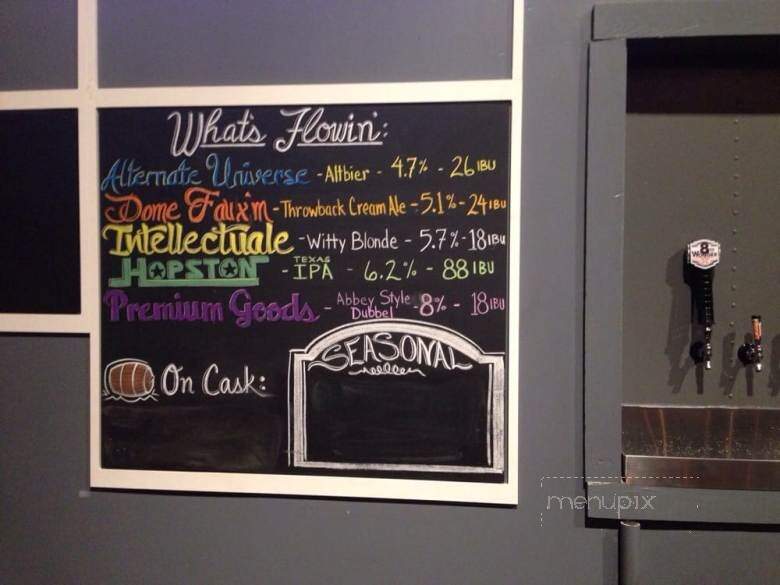 What's Flowin':
Alternate Universe - Altbier - 4.7% - 26 IBU
Dome Faux'm - Throwback Cream Ale - 5.1% - 24 IBU
Intellectuale - Witty Blonde - 5.7% - 18 IBU
HOPSTON - TEXAS IPA - 6.2% - 88 IBU
Premium Goods - Abbey Style Dubbel - 8% - 18 IBU
SEASONAL
On Cask:
8
WONDER
menupix